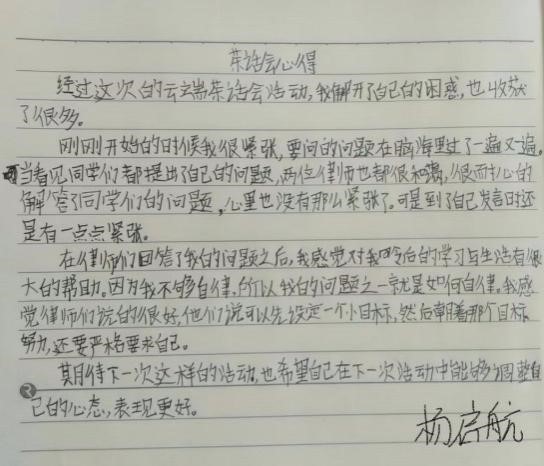 茶话会心得
经过这次的云端茶话会活动,我解开了自己的困惑,也收获
了很多。
刚刚开始的时候我很紧张,要问的问题在脑海里过了一遍又一遍。
当看见同学们都提出了自己的问题,两位律师也都很和蔼,很耐心的
解答了同学们的问题,心里也没有那么紧张了。可是到了自己发言时还
是有一点点紧张。
在律师们回答了我的问题之后,我感觉对我今后的学习与生活有很
大的帮助。因为我不够自律,所以我的问题之一就是如何自律。我感
觉律师们说的很好,他们说可以先设定一个小目标,然后朝着那个目标
努力,还要严格要求自己。
期待下一次这样的活动,也希望自己在下一次活动中能够调整自
己的心态,表现更好。
杨启航